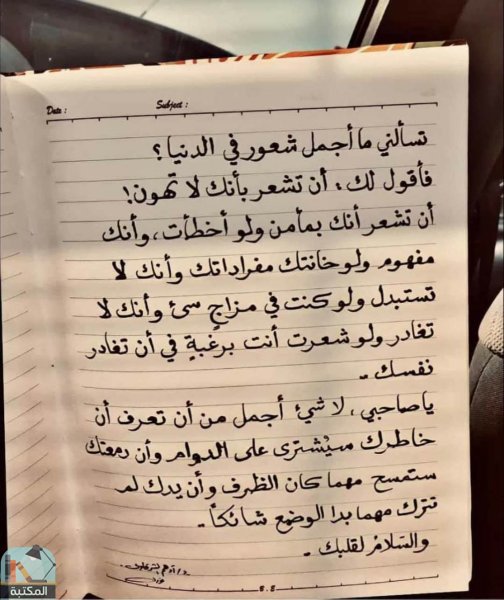 Date :
Subject :
تسألني ما أجمل شعور في الدنيا؟
فأقول لك: أن تشعر بأنك لا تهون!
أن تشعر أنك بمأمن ولو أخطأت، وأنك
مفهوم ولو خانتك مفراداتك وأنك لا
تستبدل ولو كنت في مزاج سئ وأنك لا
تغادر ولو شعرت أنت برغبةٍ في أن تغادر
نفسك -
يا صاحبي، لا شئ أجمل من أن تعرف أن
خاطرك سيُشترى على الدوام وأن دمعتك
ستمسح مهما كان الظرف وأن يدك لم
تترك مهما بدا الوضع شائكاً -
والسلامُ لقلبك -
المكتبة